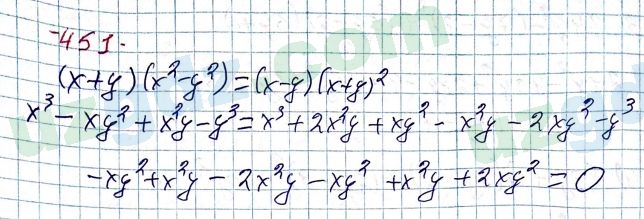 451.
(x+y)(x²-y²)=(x-y)(x+y)²
x³-xy²+x²y-y³=x³+2x²y+xy²-x²y-2xy²-y³
-xy²+x²y-2x²y-xy²+x²y+2xy²=0